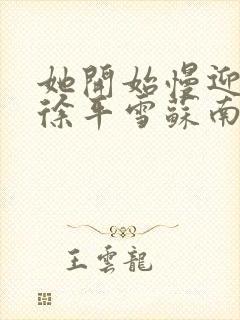 她開始慢迎
徐平雪蘇南
王雲龍